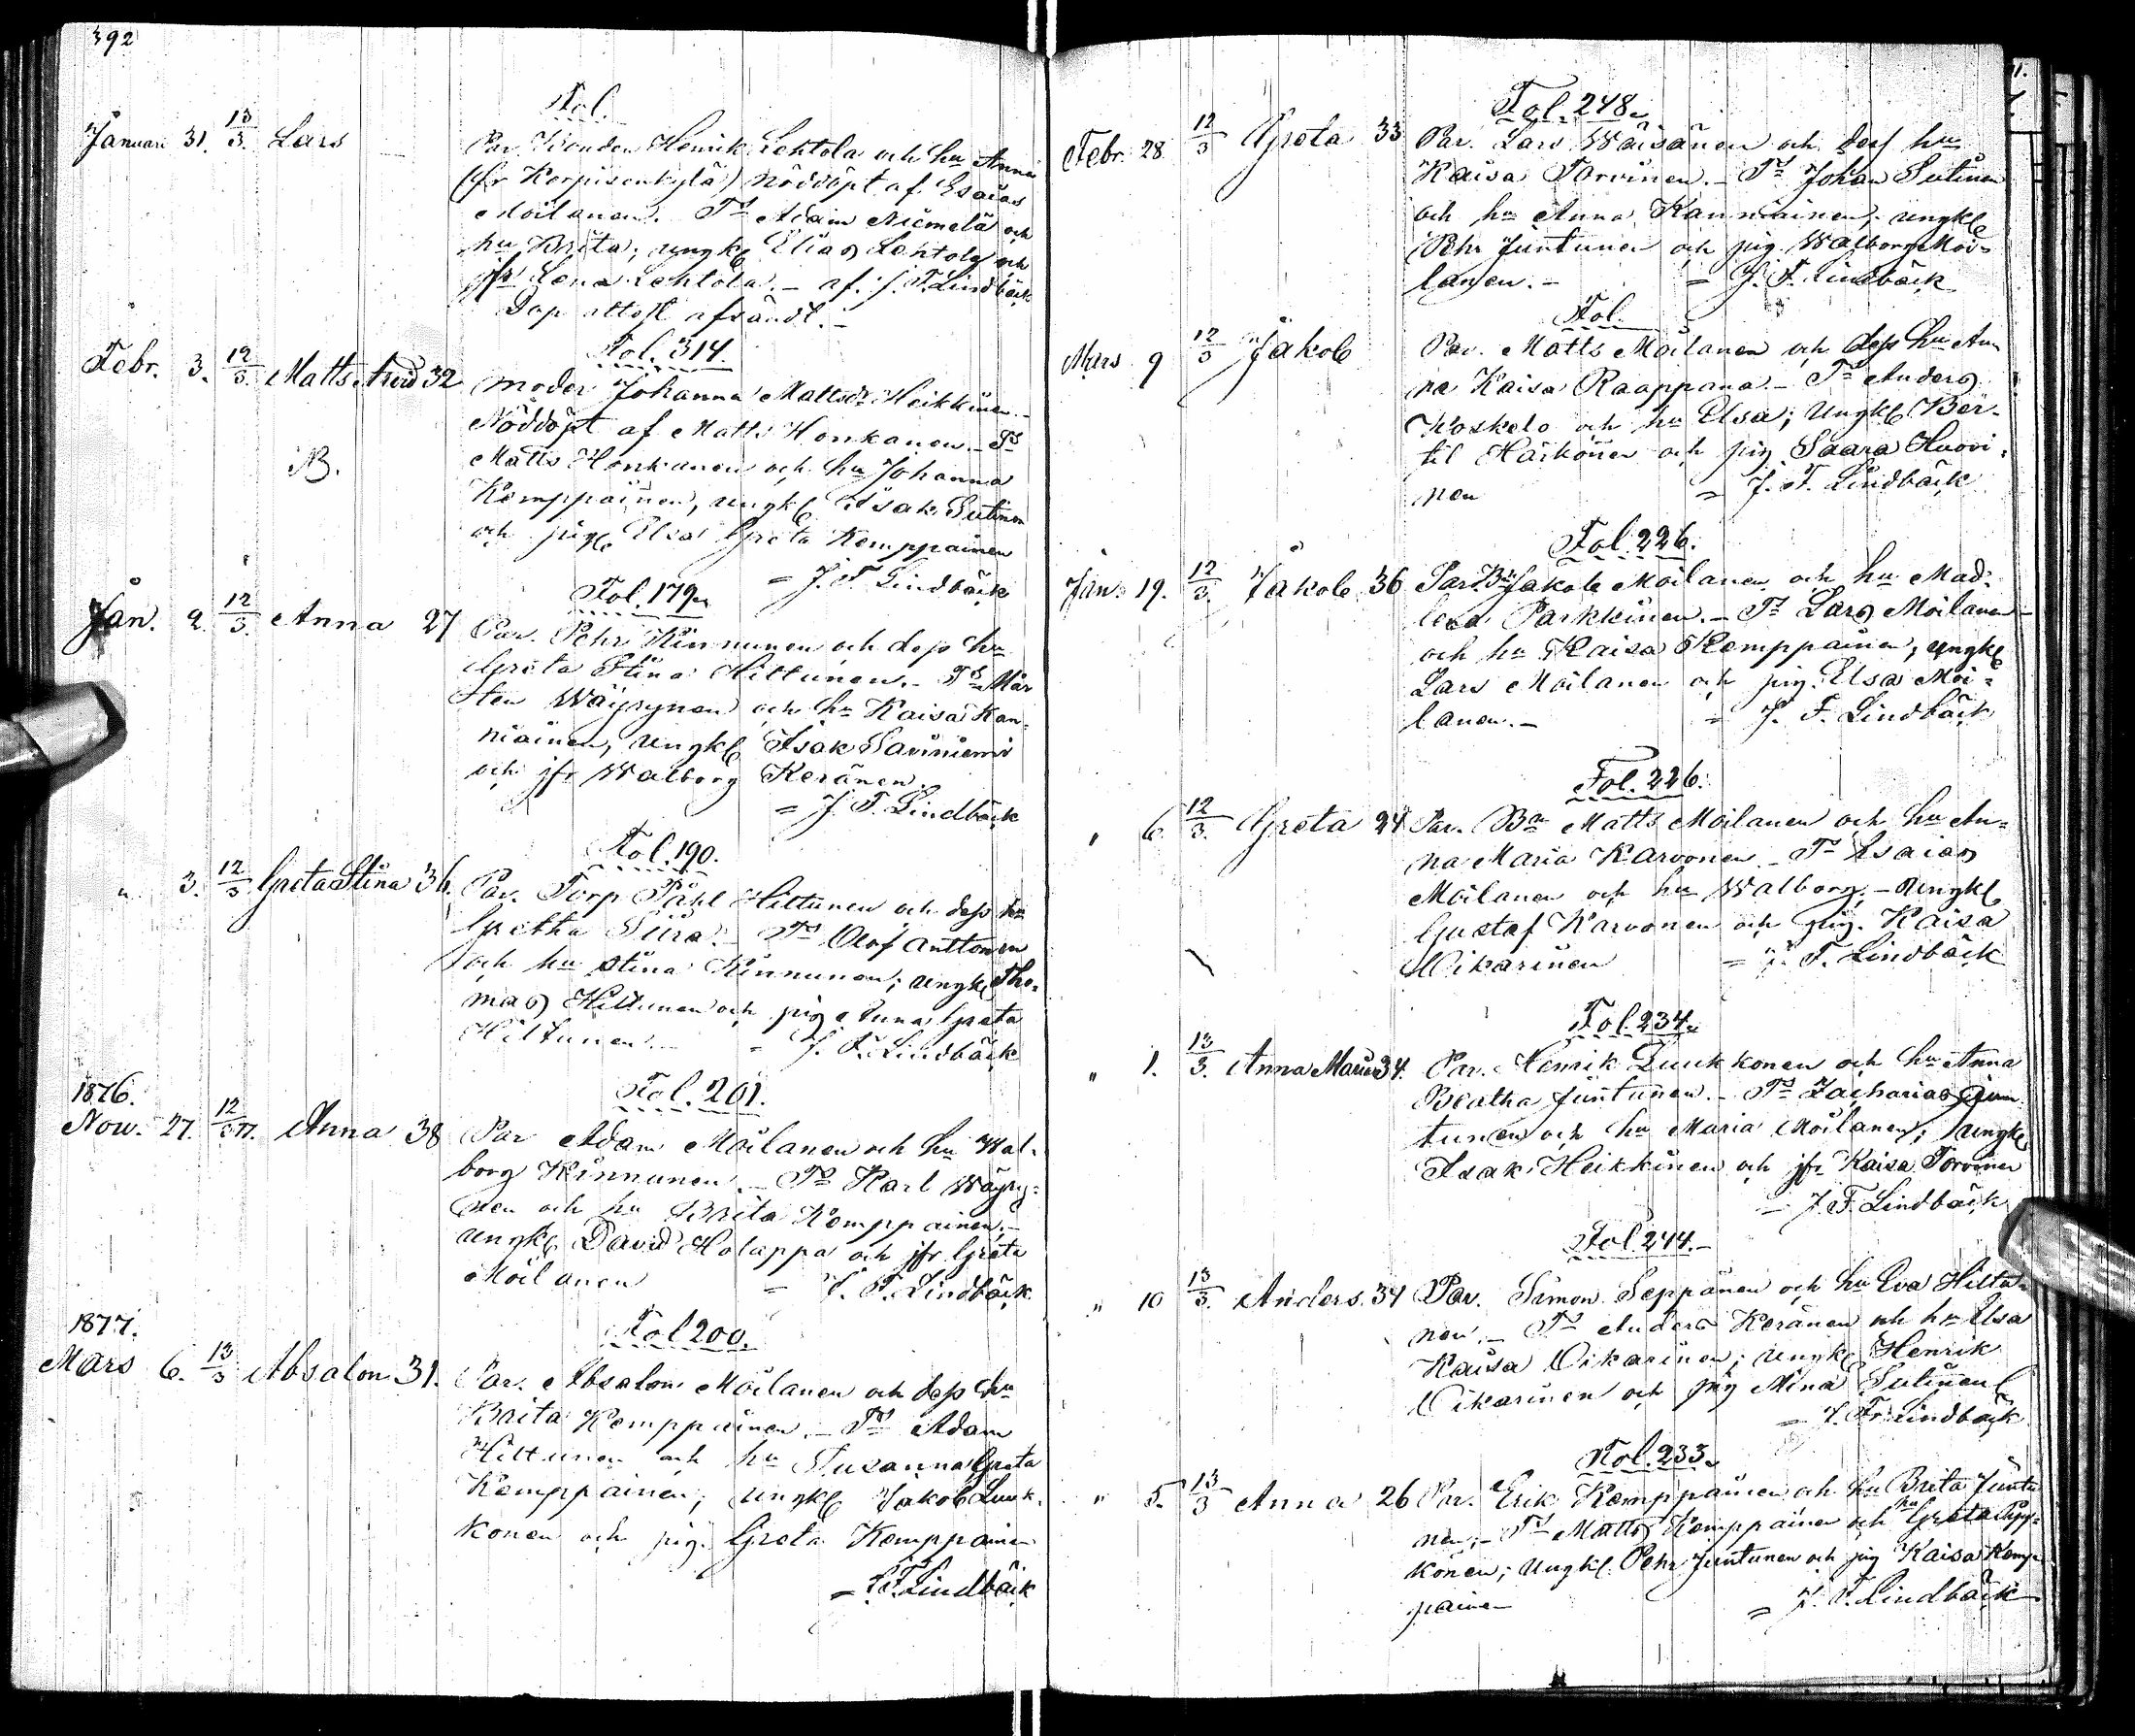 392
Fol.
Januari 31. 13/3. Lars Par. Bonden Henrik Lehtola och hu Anna
(fr Korpisenkylä) nöddöpt af Esaias
Moilanen. Ts Adam Niemelä och
hu Brita; ungkl Elias Lehtola och
jfr Lena Lehtola. – af J. F. Lindbäck
Dop attest afsändt. –
Fol. 314.
Febr. 3. 12/3. Matts Arvid 32 moder Johanna Mattsdr Heikkinen. –
Nöddöpt af Matts Honkanen. Ts
NB. Matts Honkanen och hu Johanna
Kemppainen, ungkl Isak Sutinen
och pig Elsa Greta Kemppainen
= J. F. Lindbäck
Fol. 179.
Jan. 2. 12/3. Anna 27 Par. Pehr Kinnunen och dess hu
Greta Stina Hiltunen. – Ts Mår
ten Wäyrynen och hu Kaisa Kan-
niainen, ungkl Isak Sauniemi
och jfr Walborg Keränen.
= J. F. Lindbäck
Fol. 190.
" 3. 12/3. Greta Stina 36. Par. Torp Påhl Hiltunen och dess hu
Gretha Siira. – Ts Olof Anttonen
och hu Stina Kinnunen; ungkl Tho-
mas Hiltunen och pig Anna Greta
Hiltunen. – = J. F. Lindbäck
Fol. 201.
1876.
Nov. 27. 12/3 77. Anna 38 Par Adam Moilanen och hu Wal-
borg Kinnunen. – Ts Karl Wäyry-
nen och hu Brita Kemppainen, –
ungkl David Holappa och jfr Greta
Moilanen = J. F. Lindbäck
1877. Fol 200.
Mars 6. 13/3 Absalon 31. Par. Absalon Moilanen och dess hu
Brita Kemppainen. – Ts Adam
Hiltunen och hu Susanna Greta
Kemppainen; ungkl Jakob Luuk-
konen och pig. Greta Kemppainen
= J. F. Lindbäck
Fol. 248.
Febr. 28 12/3 Greta 33 Par. Lars Wäisänen och dess hu
Kaisa Torvinen. – Ts Johan Sutinen
och hu Anna Kanniainen; ungkl
Pehr Juntunen och pig Walborg Moi-
lanen. – = J. F. Lindbäck
Fol.
Mars 9 12/3 Jakob Par. Matts Moilanen och dess hu An
na Kaisa Raappana. – Ts Anders
Koskelo och hu Elsa; ungkl Ber-
til Härkönen och pig Saara Huovi-
nen = J. F. Lindbäck
Fol. 226.
Jan. 19. 12/3. Jakob 36 Par. Bn Jakob Moilanen och hu Mad-
lena Parkkinen. – Ts Lars Moilanen
och hu Kaisa Kemppainen; ungkl
Lars Moilanen och pig. Elsa Moi-
lanen. – = J. F. Lindbäck
Fol. 226.
" 6. 12/3. Greta 24 Par. Bn Matts Moilanen och hu An-
na Maria Karvonen. Ts Esaias
Moilanen och hu Walborg, – ungkl
Gustaf Karvonen och pig. Kaisa
Oikarinen = J. F. Lindbäck
Fol. 234.
" 1. 13/3. Anna Maria 34. Par. Henrik Luukkonen och hu Anna
Beatha Juntunen. – Ts Zacharias Jun
tunen och hu Maria Moilanen; ungkl
Isak Heikkinen och jfr Kaisa Torvinen
= J. F. Lindbäck
Fol. 244. –
" 10 13/3. Anders. 34 Par. Simon Seppänen och hu Eva Hiltu-
nen. – Ts Anders Keränen och hu Elsa
Kaisa Oikarinen; ungkl Henrik
Oikarinen och pig Mina Sutinen
= J. F. Lindbäck
Fol. 233.
" 5. 13/3 Anna 26 Par. Erik Kemppainen och hu Brita Juntu
nen. – Ts Matts Kemppainen och hu Greta Pyy-
könen; ungkl. Pehr Juntunen och pig Kaisa Kemp-
painen = J. F. Lindbäck